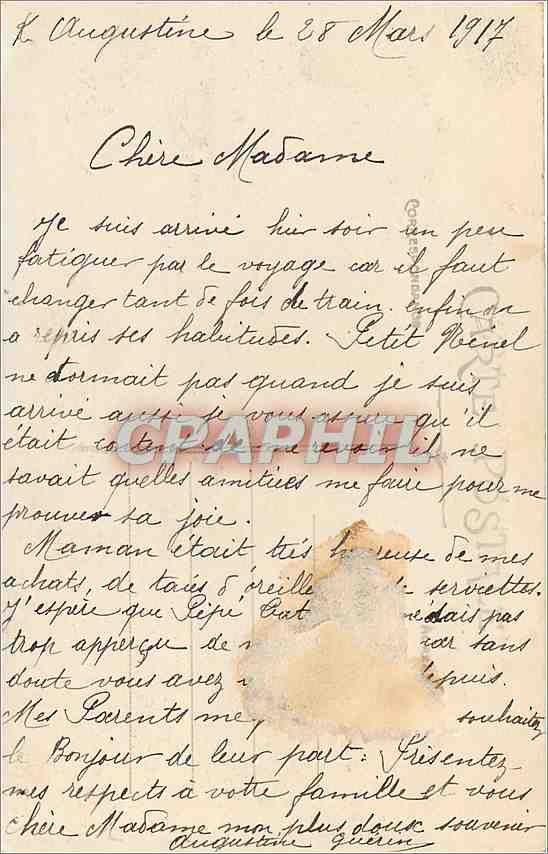 Augustine le 28 Mars 1917
Chère Madame
CORRESPONDANCE
CARTE POSTALE
Je suis arrivé hier soir un peu
fatiguer par le voyage car il faut
changer tant de fois de train. enfin on
a repris ses habitudes. Petit Nénel
ne dormait pas quand je suis
arrivé aussi je vous assure qu'il
était content de me revoir il ne
CPAPHIL
savait quelles amitiées me faire pour me
prouver sa joie.
Maman était très heureuse de mes
achats, de taies d'oreille serviettes.
J'espère que Pépé pas
trop apperçu de car sans
doute vous avez depuis.
Mes Parents me souhaitez
le Bonjour de leur part. Présentez
mes respects à votre famille et vous
chère Madame mon plus doux souvenir
Augustine Guerin